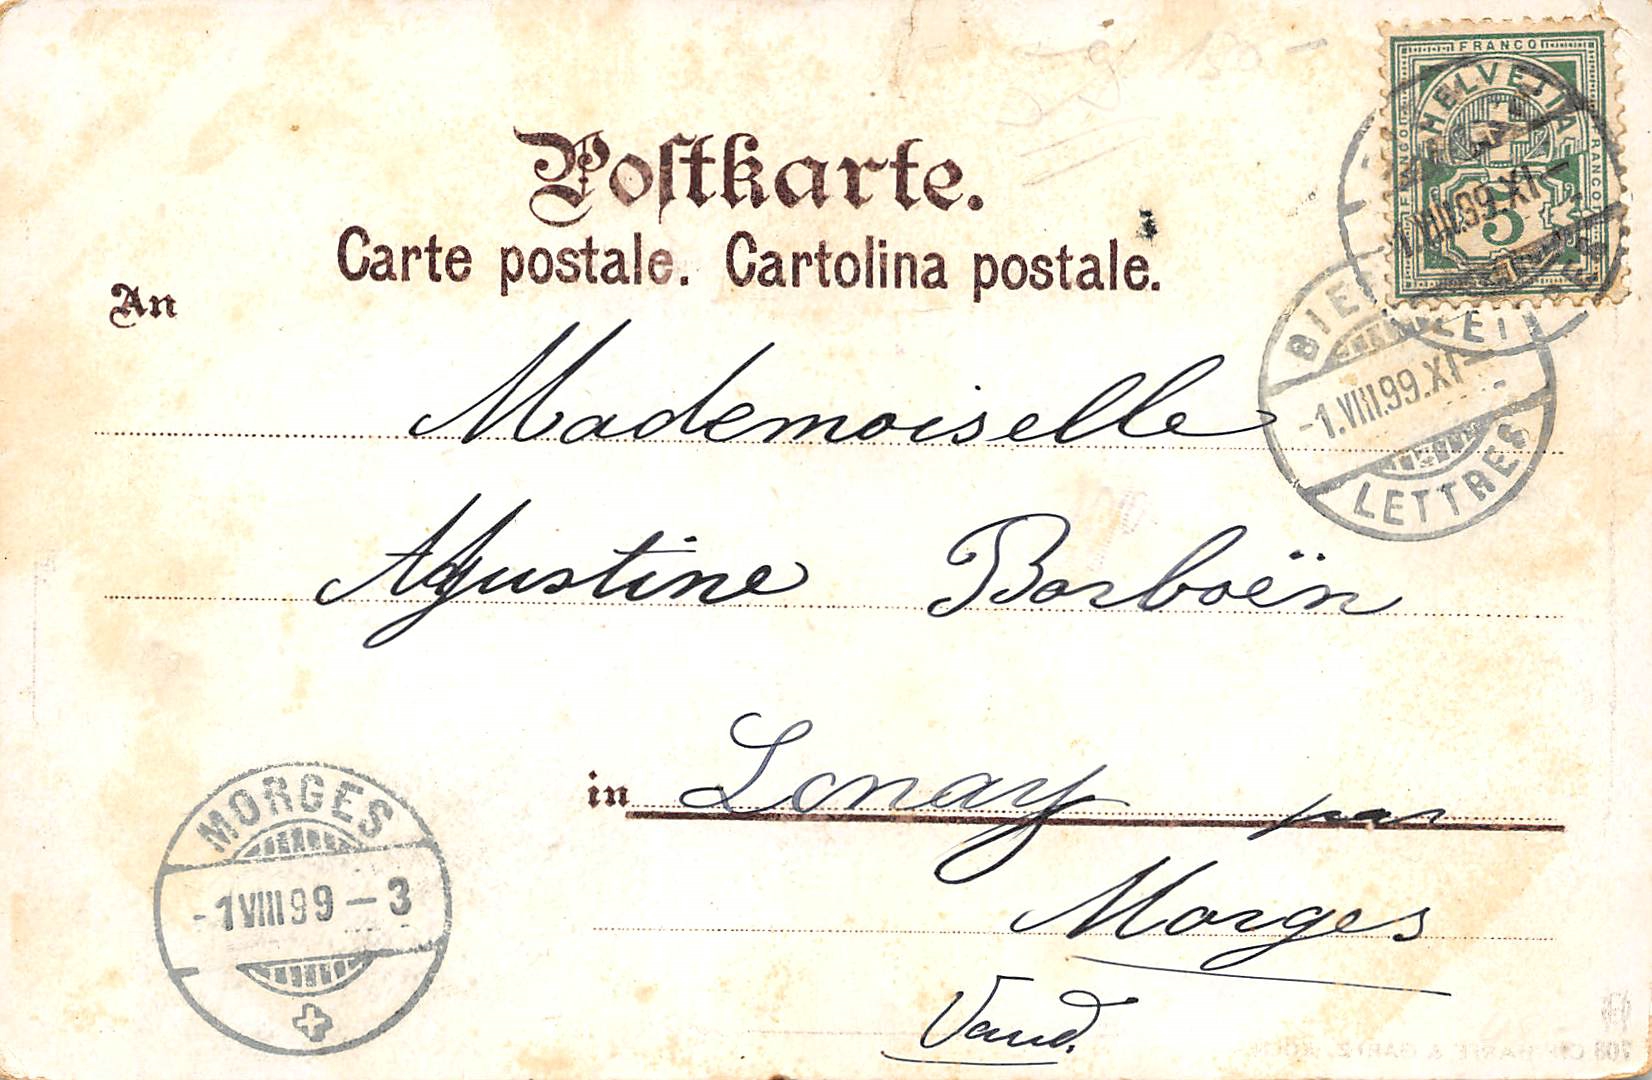 FRANCO
HELVETIA
FRANCO
FRANCO
5
Postkarte.
Carte postale. Cartolina postale.
An
BIEL
-1.VIII.99.XI-
LETTRES
Mademoiselle
Agustine Borboën
in Lonay par
Morges
Vaud.
MORGES
-1 VIII 99 - 3